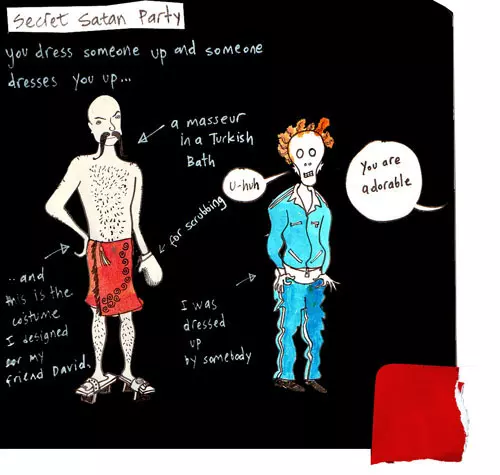 Secret Satan Party
you dress someone up and someone
dresses you up...
a masseur
in a Turkish
Bath
U-huh
You are
adorable
for scrubbing
.. and
this is the
costume
I designed
for my
friend David.
I was
dressed
up
by somebody